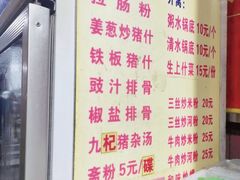 拉肠粉
姜葱炒猪什
铁板猪什
豉汁排骨
椒盐排骨
九杞猪杂汤
斋粉5元/碟
粥水锅底10元/个
清水锅底10元/个
生上什菜15元/份
三丝炒米粉20元
三丝炒河粉20元
牛肉炒米粉25元
牛肉炒河粉25元